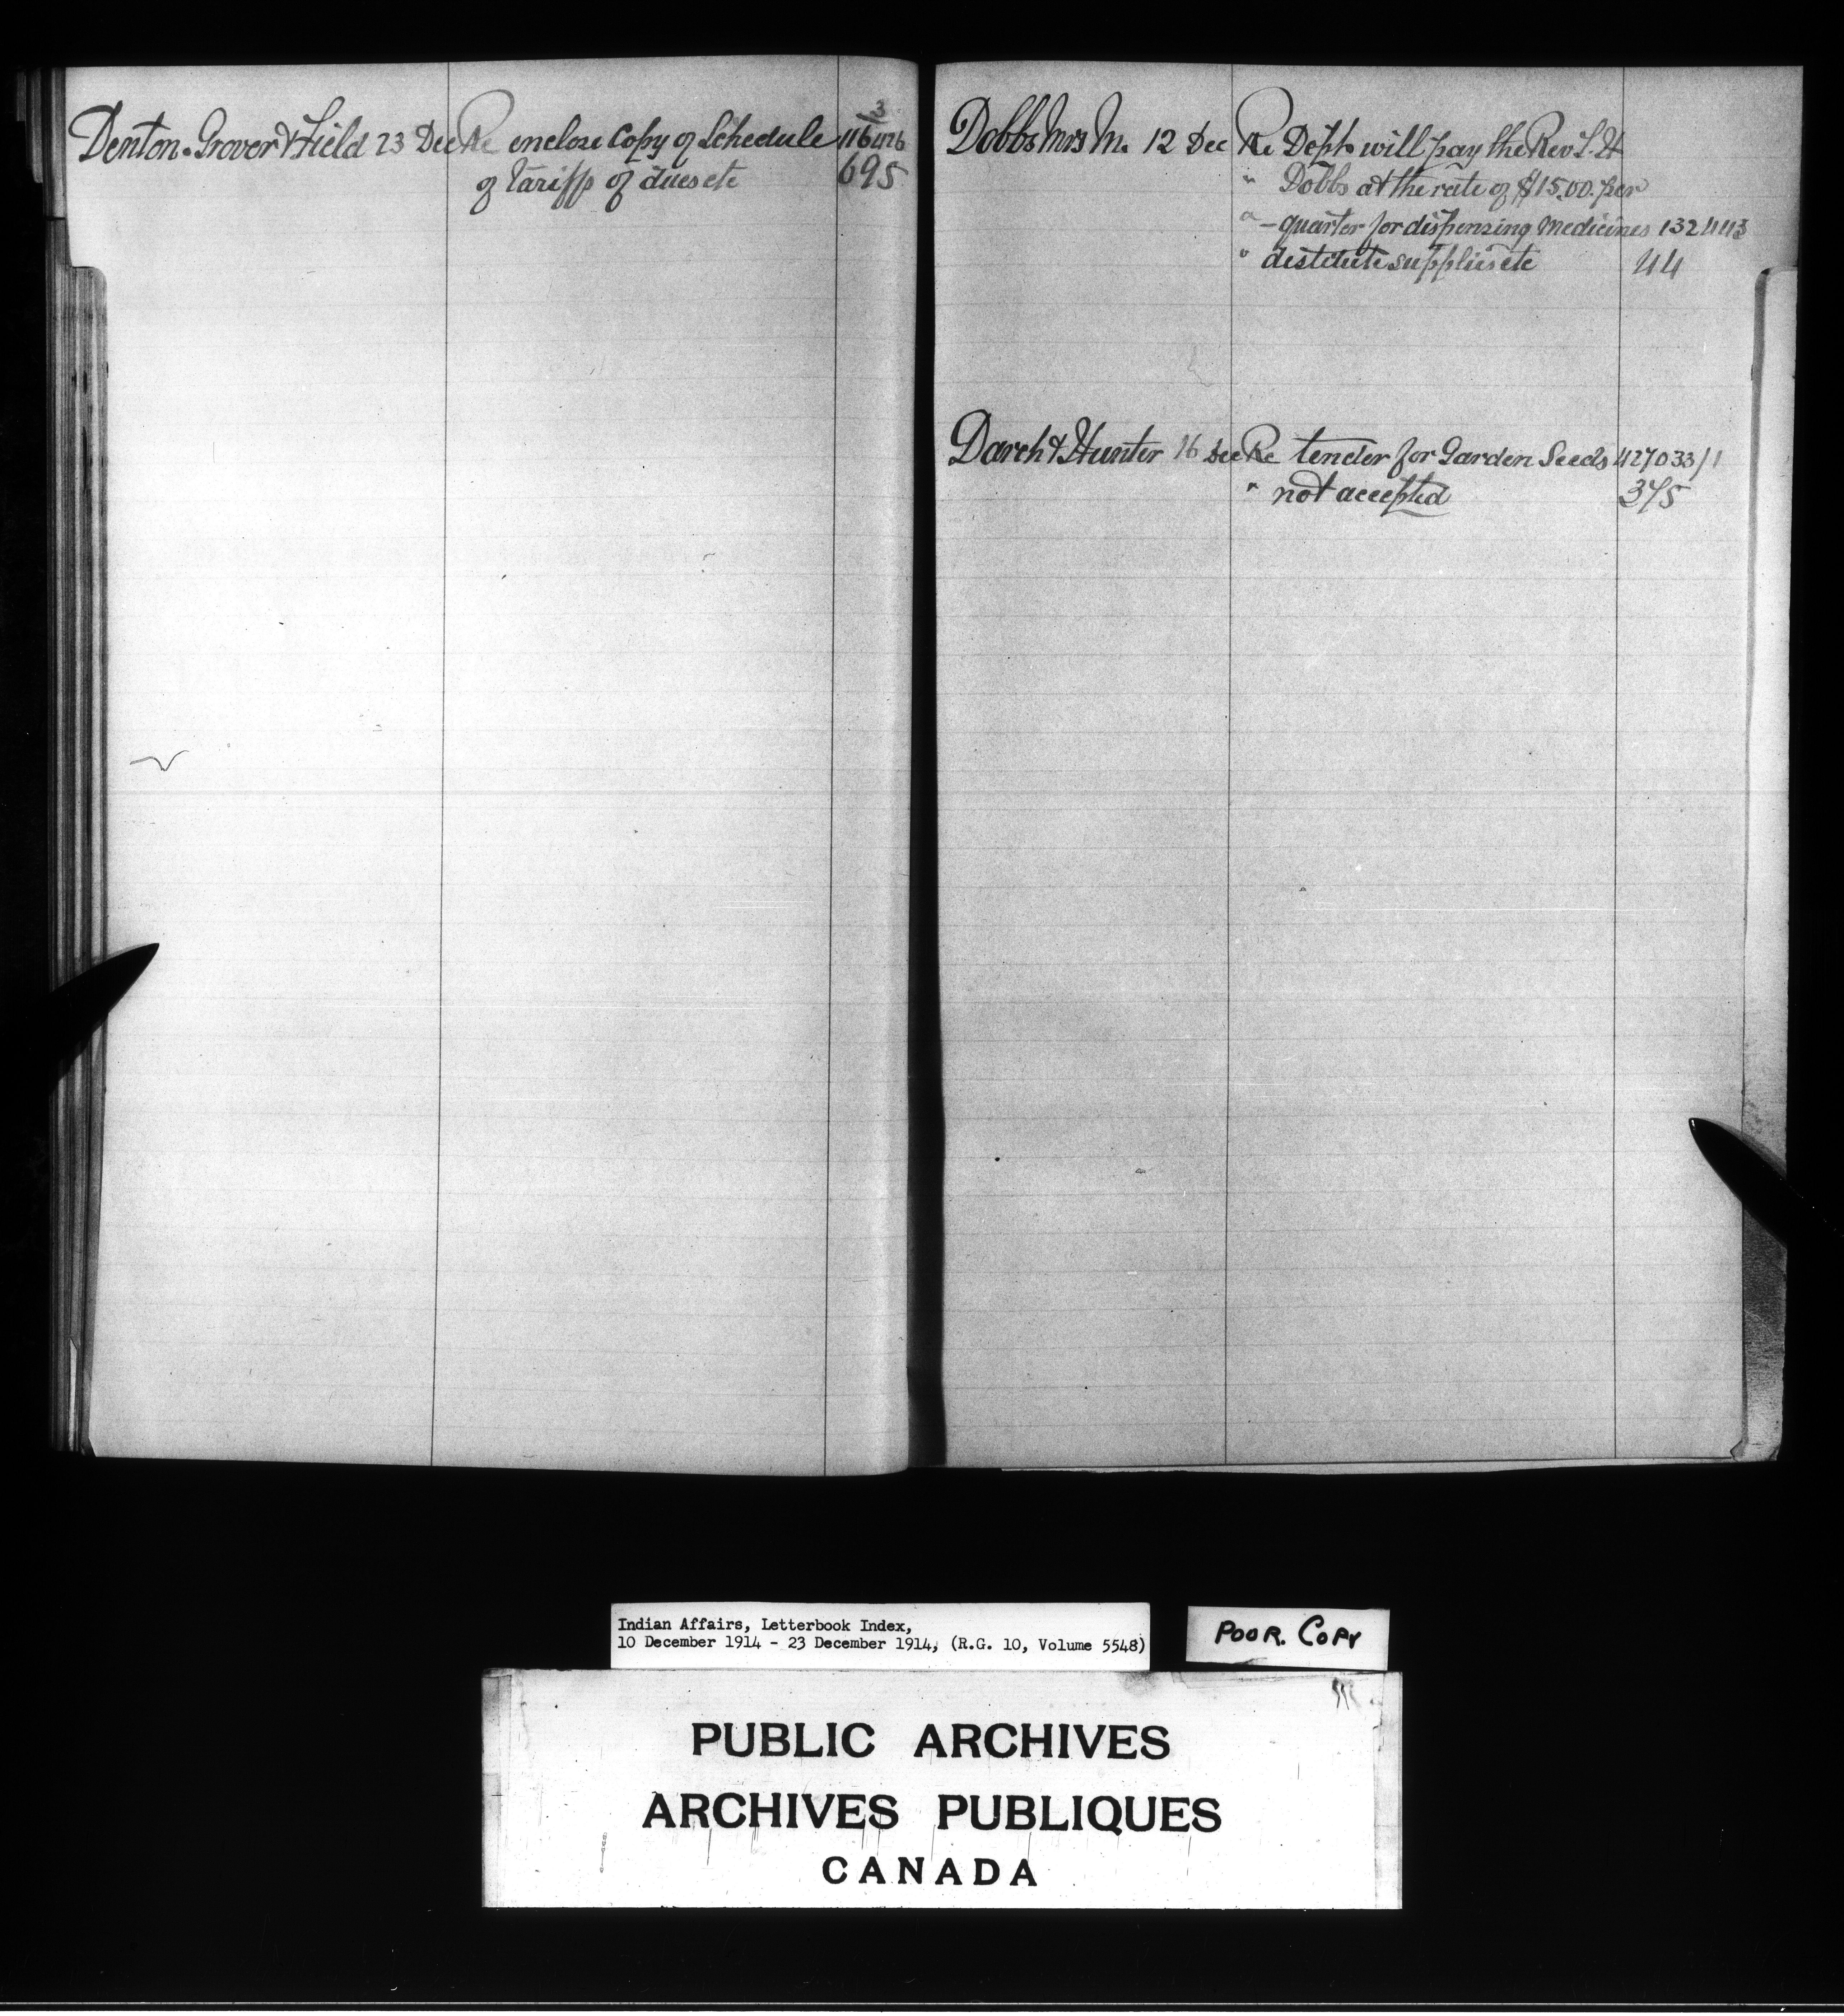 Denton. Grover & Field 23 Dec Re enclose Copy of Schedule 116426
3
of tariffs of dues etc 695
Dobbs Mrs M. 12 Dec Re Dept. will pay the Rev
" Dobbs at the rate of $15.00. per
" – quarter for dispensing medicines 132443
" destitute supplies etc 44
Darch & Hunter 16 Dec Re tender for Garden Seeds 427033/1
" not accepted 375
Indian Affairs, Letterbook Index,
10 December 1914 - 23 December 1914, (R.G. 10, Volume 5548)
POOR. COPY
PUBLIC ARCHIVES
ARCHIVES PUBLIQUES
CANADA